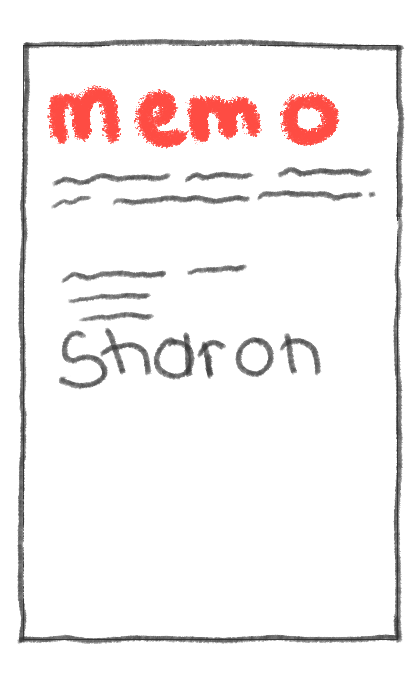 memo
Sharon